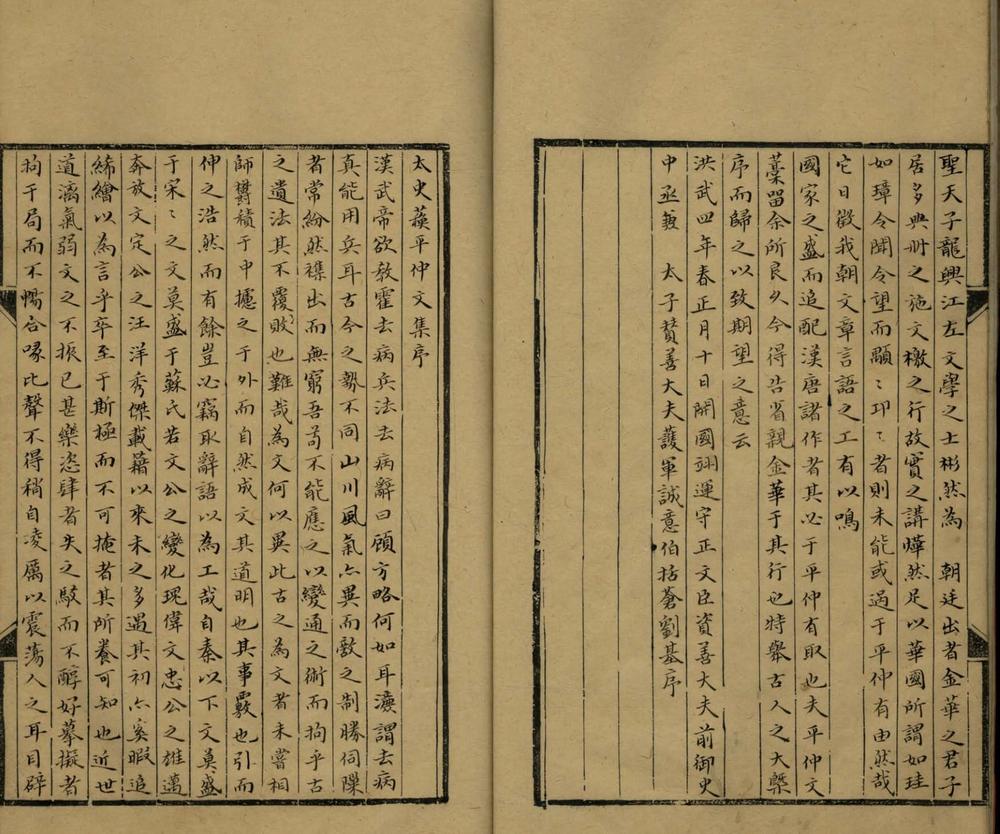 聖天子龍興江左文學之士彬然為　朝廷出者金華之君子
居多典冊之施文檄之行故實之講燁然足以華國所謂如珪
如璋令聞令望而顒〻卬〻者則未能或過于平仲有由然哉
它日徵我朝文章言語之工有以鳴
國家之盛而追配漢唐諸作者其必于平仲有取也夫平仲文
藁留余所良久今得告省親金華于其行也特舉古人之大槩
序而歸之以致期望之意云
洪武四年春正月十日開國翊運守正文臣資善大夫前御史
中丞兼　太子贊善大夫護軍誠意伯括蒼劉基序
太史蘓平仲文集序
漢武帝欲教霍去病兵法去病辭曰顧方略何如耳濂謂去病
真能用兵耳古今之勢不同山川風氣亦異而敵之制勝伺隙
者常紛然襍出而無窮吾苟不能應之以變通之術而拘乎古
之遺法其不覆敗也難哉為文何以異此古之為文者未嘗相
師欝積于中攄之于外而自然成文其道明也其事覈也引而
伸之浩然而有餘豈必竊取辭語以為工哉自秦以下文莫盛
于宋〻之文莫盛于蘇氏若文公之變化瑰偉文忠公之雄邁
奔放文定公之汪洋秀傑載籍以來未之多遇其初亦奚暇追
絺繪以為言乎卒至于斯極而不可掩者其所養可知也近世
道漓氣弱文之不振已甚樂恣肆者失之駁而不醇好摹擬者
拘于局而不暢合喙比聲不得稍自凌厲以震蕩人之耳目辟